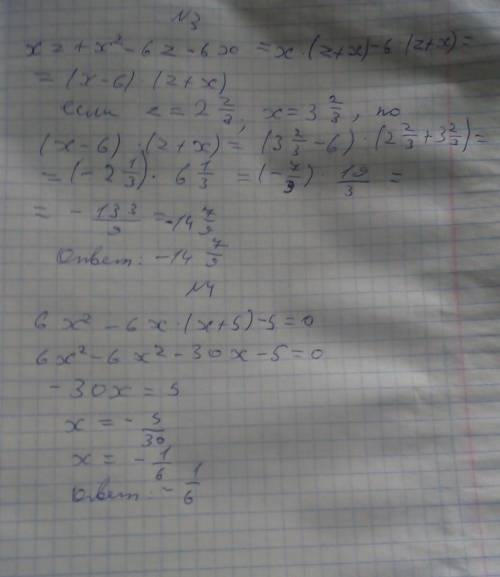 №3
xz + x² - 6z - 6x = x · (z+x) - 6 · (z+x) =
= (x-6) · (z+x)
если z = 2 2/3, x = 3 2/3, то
(x-6) · (z+x) = (3 2/3 - 6) · (2 2/3 + 3 2/3) =
= (-2 1/3) · 6 1/3 = (-7/3) · 19/3 =
= - 133/9 = -14 7/9
Ответ: -14 7/9
№4
6x² - 6x · (x+5) - 5 = 0
6x² - 6x² - 30x - 5 = 0
-30x = 5
x = - 5/30
x = - 1/6
Ответ: - 1/6